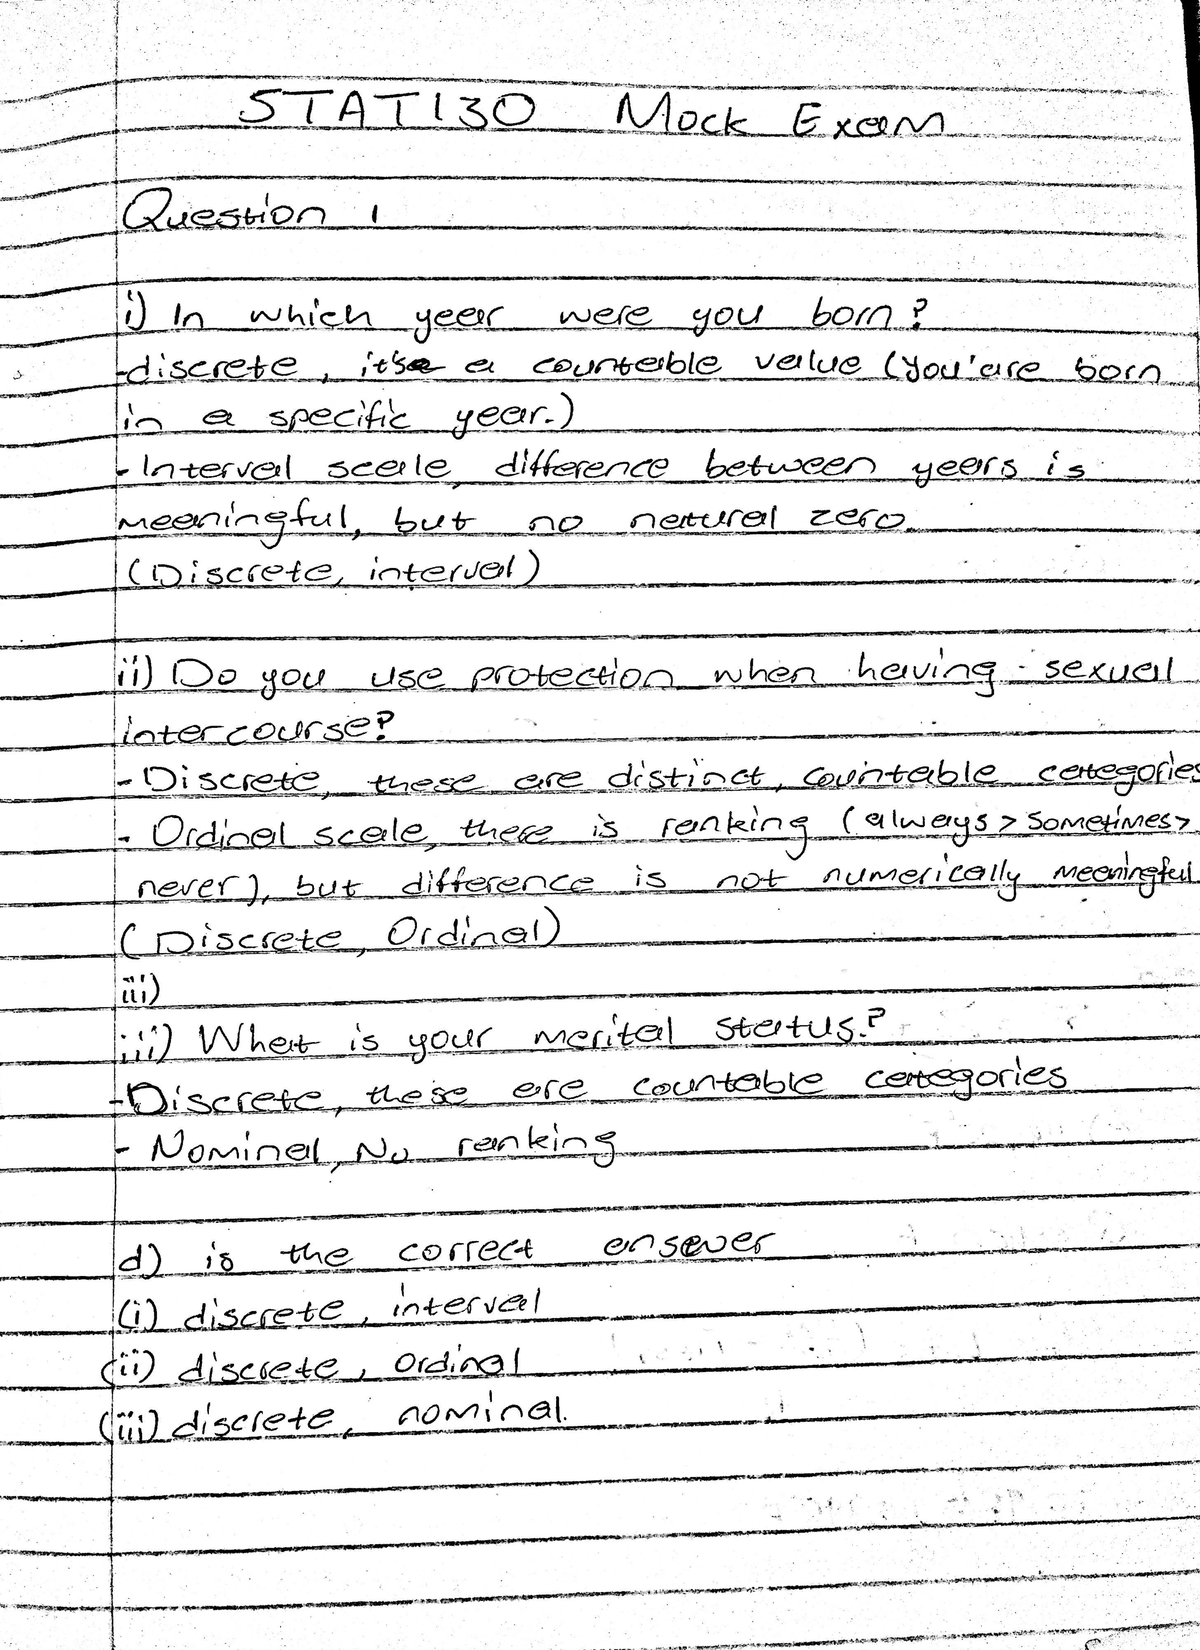 STAT130 Mock Exam
Question 1
i) In which year were you born?
-discrete, it's a countable value (you'are born
in a specific year.)
- Interval scale, difference between years is
meaningful, but no natural zero.
(Discrete, interval)
ii) Do you use protection when having sexual
intercourse?
- Discrete, these are distinct, countable categories
- Ordinal scale, there is ranking (always > sometimes >
never), but difference is not numerically meaningful
(Discrete, Ordinal)
iii)
iii) What is your marital status?
-Discrete, these are countable categories
- Nominal, No ranking
d) is the correct answer
(i) discrete, interval
(ii) discrete, ordinal
(iii) discrete, nominal.